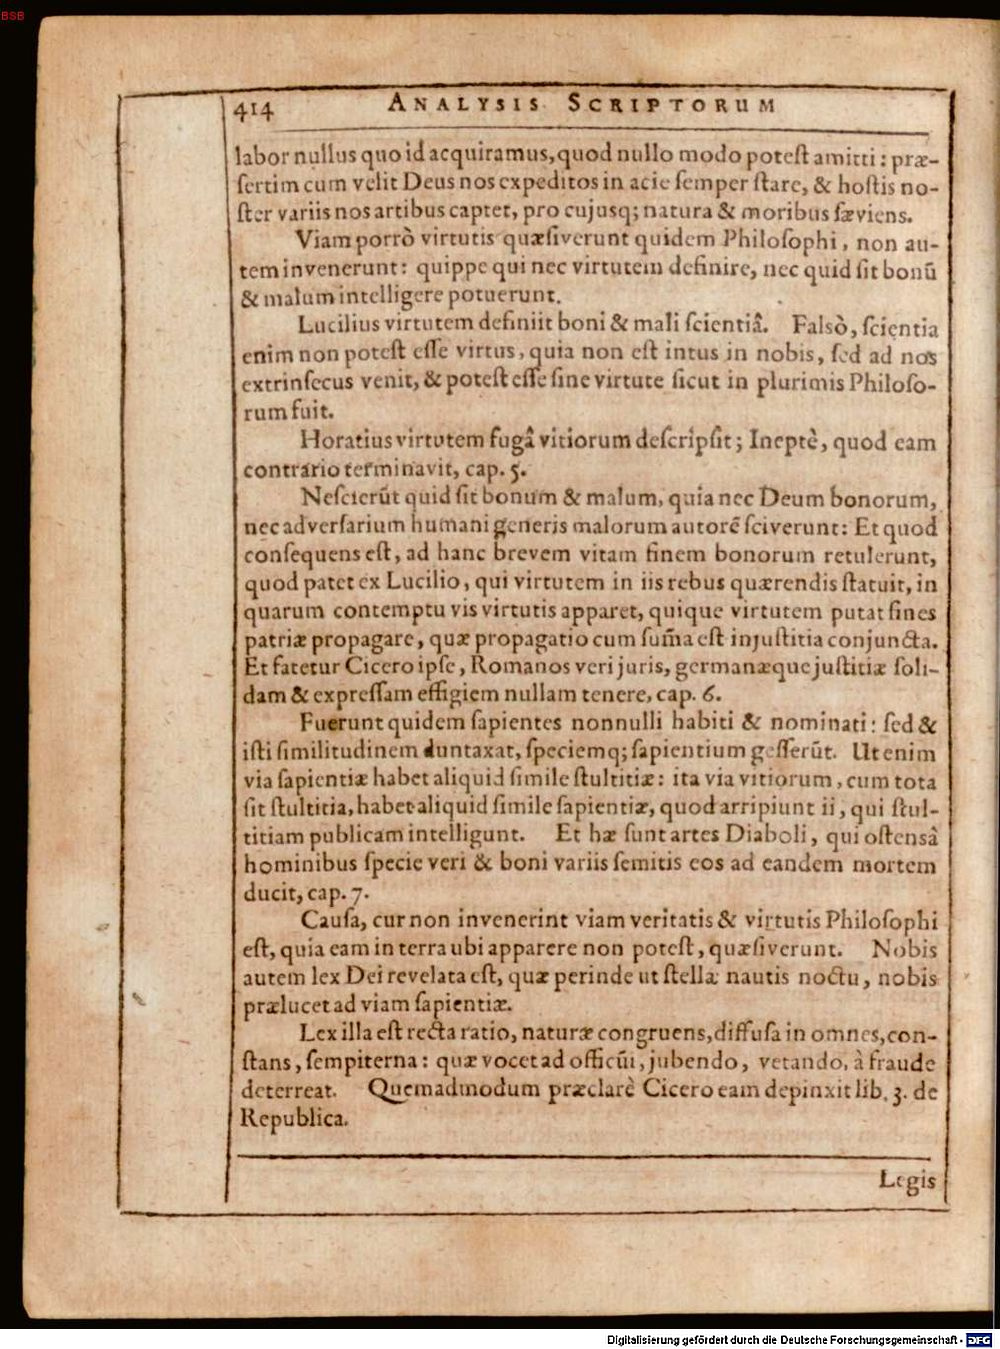 BSB
414 ANALYSIS SCRIPTORUM
labor nullus quo id acquiramus, quod nullo modo potest amitti: præ-
sertim cum velit Deus nos expeditos in acie semper stare, & hostis no-
ster variis nos artibus captet, pro cujusq; natura & moribus sæviens.
Viam porrò virtutis quæsiverunt quidem Philosophi, non au-
tem invenerunt: quippe qui nec virtutem definire, nec quid sit bonũ
& malum intelligere potuerunt.
Lucilius virtutem definiit boni & mali scientiâ. Falsò, scientia
enim non potest esse virtus, quia non est intus in nobis, sed ad nos
extrinsecus venit, & potest esse sine virtute sicut in plurimis Philoso-
rum fuit.
Horatius virtutem fugâ vitiorum descripsit; Ineptè, quod eam
contrario terminavit, cap. 5.
Nescierũt quid sit bonum & malum, quia nec Deum bonorum,
nec adversarium humani generis malorum autorẽ sciverunt: Et quod
consequens est, ad hanc brevem vitam finem bonorum retulerunt,
quod patet ex Lucilio, qui virtutem in iis rebus quærendis statuit, in
quarum contemptu vis virtutis apparet, quique virtutem putat fines
patriæ propagare, quæ propagatio cum sum̃a est injustitia conjuncta.
Et fatetur Cicero ipse, Romanos veri juris, germanæque justitiæ soli-
dam & expressam effigiem nullam tenere, cap. 6.
Fuerunt quidem sapientes nonnulli habiti & nominati: sed &
isti similitudinem duntaxat, speciemq; sapientium gesserũt. Ut enim
via sapientiæ habet aliquid simile stultitiæ: ita via vitiorum, cum tota
sit stultitia, habet aliquid simile sapientiæ, quod arripiunt ii, qui stul-
titiam publicam intelligunt. Et hæ sunt artes Diaboli, qui ostensâ
hominibus specie veri & boni variis semitis eos ad eandem mortem
ducit, cap. 7.
Causa, cur non invenerint viam veritatis & virtutis Philosophi
est, quia eam in terra ubi apparere non potest, quæsiverunt. Nobis
autem lex Dei revelata est, quæ perinde ut stella nautis noctu, nobis
prælucet ad viam sapientiæ.
Lex illa est recta ratio, naturæ congruens, diffusa in omnes, con-
stans, sempiterna: quæ vocet ad officũi, jubendo, vetando, à fraude
deterreat. Quemadmodum præclarè Cicero eam depinxit lib. 3. de
Republica.
Legis
Digitalisierung gefördert durch die Deutsche Forschungsgemeinschaft - DFG